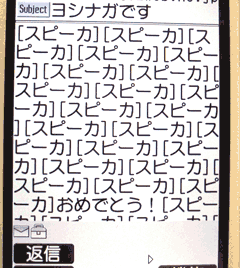 Subject ヨシナガです
[スピーカ][スピーカ][ス
ピーカ][スピーカ][スピ
ーカ][スピーカ][スピー
カ][スピーカ][スピーカ]
[スピーカ][スピーカ][ス
ピーカ][スピーカ][スピ
ーカ][スピーカ][スピー
カ][スピーカ][スピーカ]
[スピーカ][スピーカ][ス
ピーカ]おめでとう！[スピ
返信